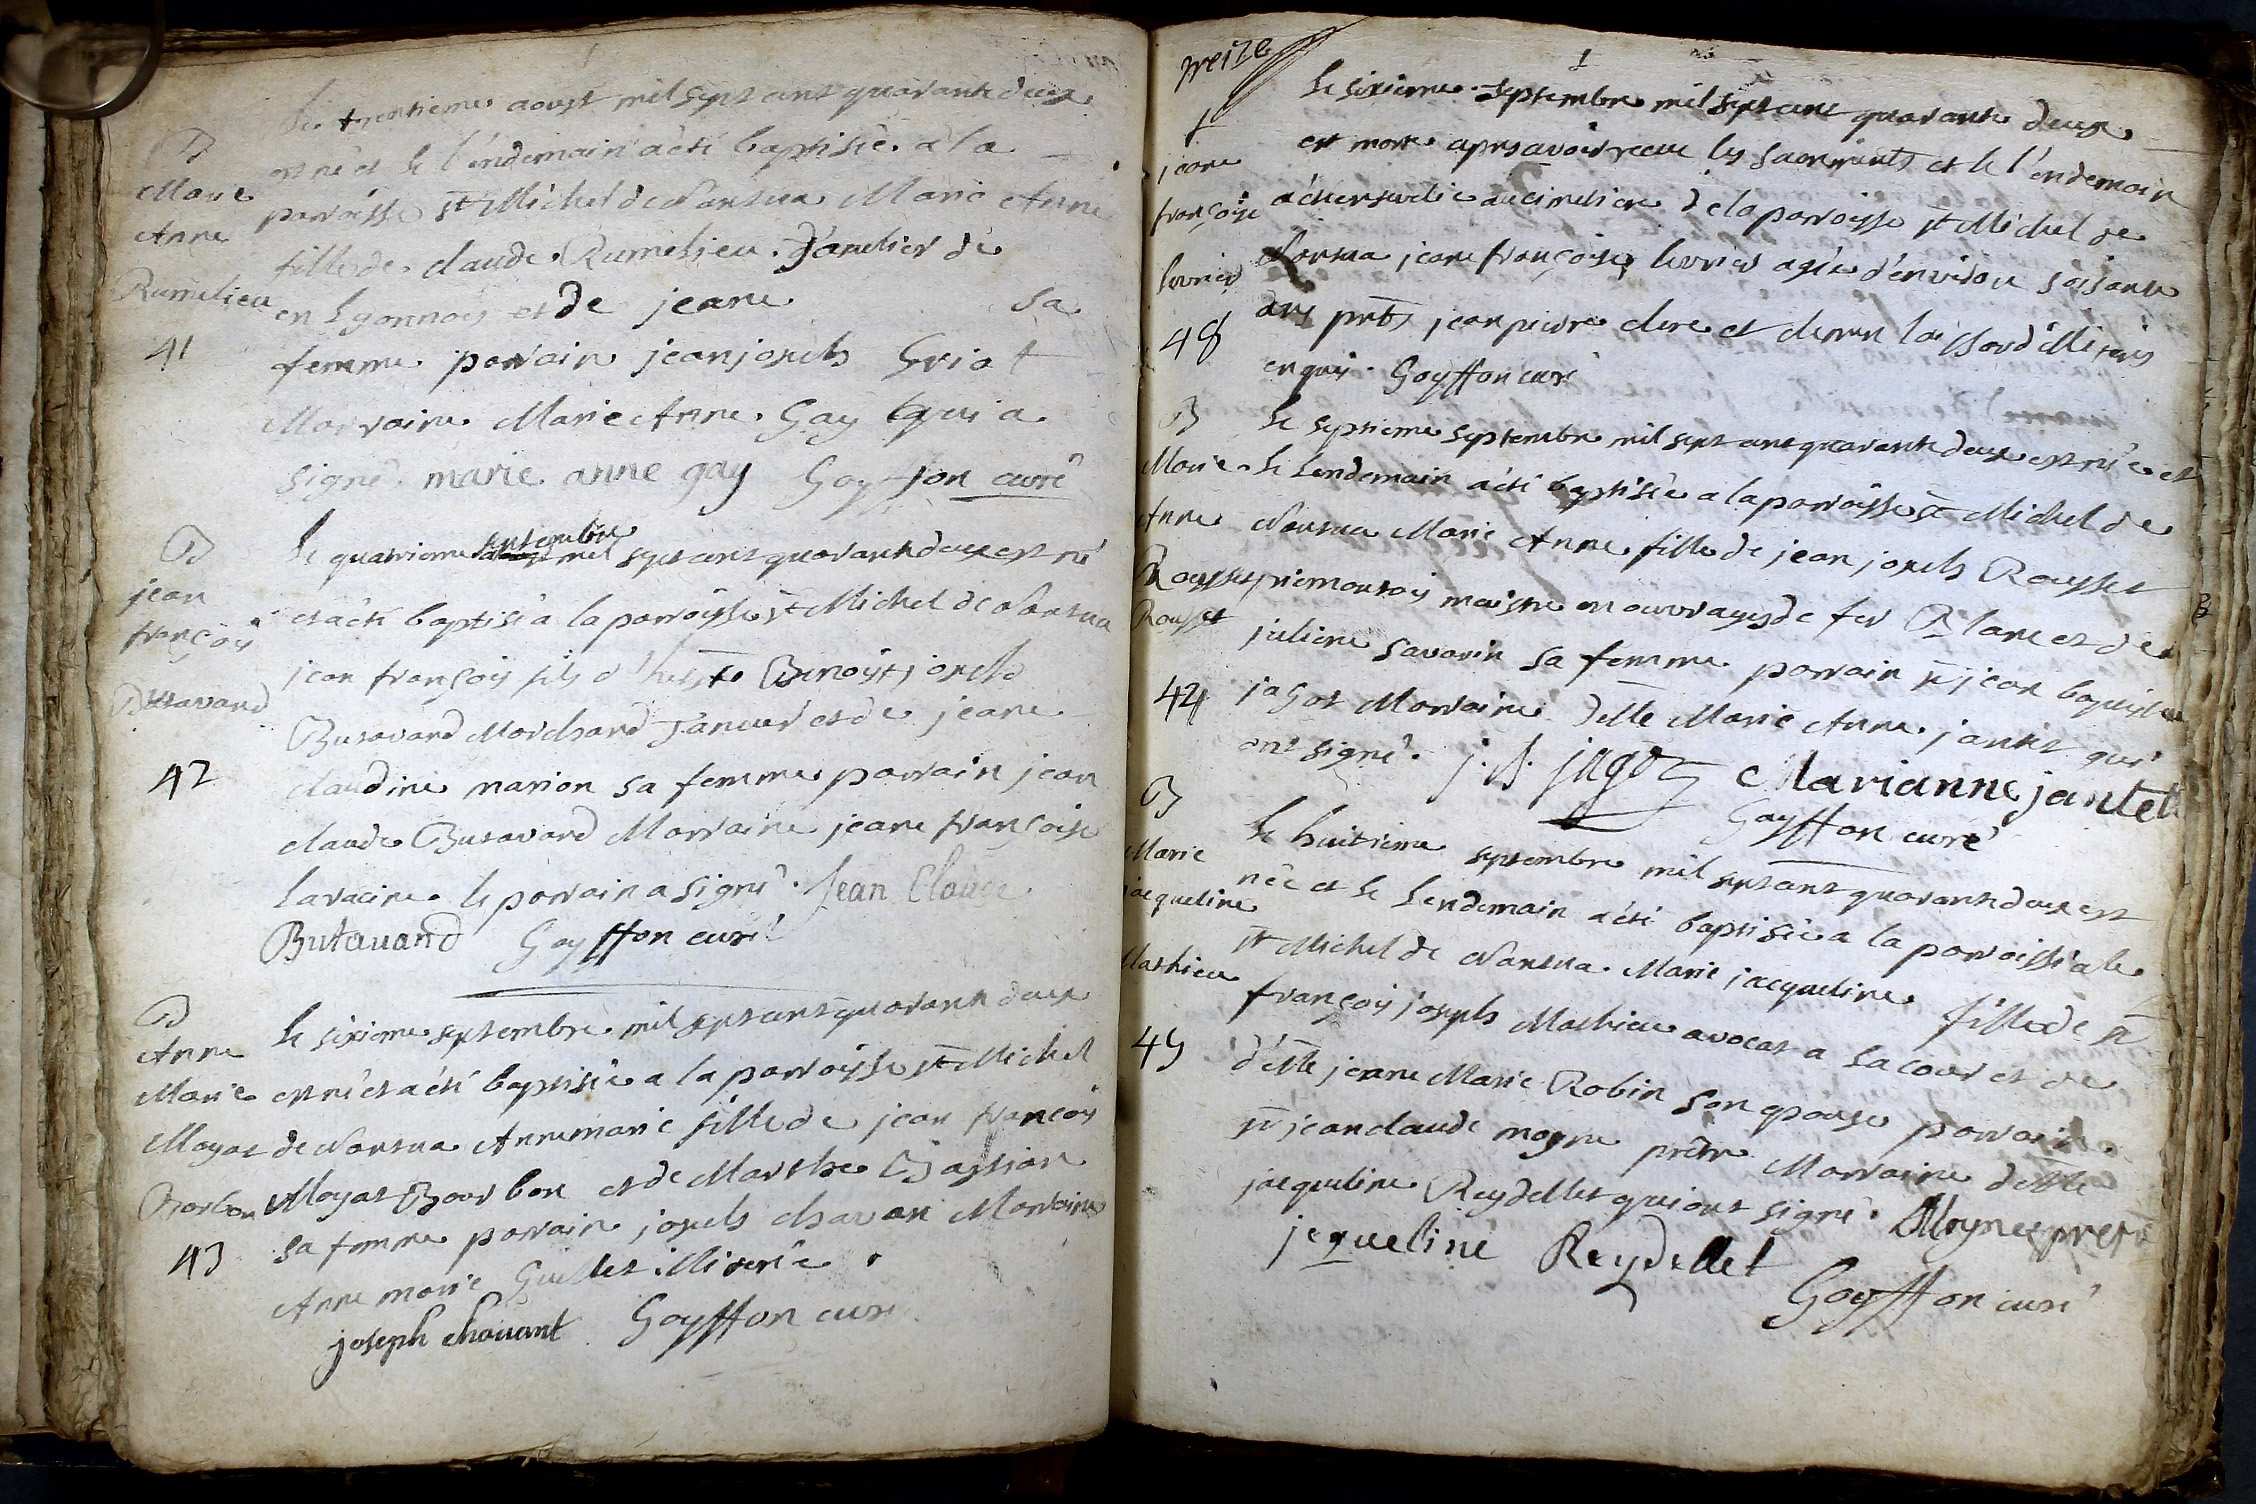 Le trentieme aoust mil sept cent quarante deux
est né et le l'endemain a été baptisée a la
parroisse st Michel de Nantua Marie Anne
fille de claude Rumelieu J'amelier de
en Lyonnois et de jeane sa
femme parrain jean joseph Griot
Marraine Marie Anne Gay qui a
signé. marie anne gay Goyffon curé
B
Marie
Anne
Rumelieu
41
Le quatrieme septembre mil sept cent quarante deux est né
et a été baptisé a la parroisse st Michel de Nantua
jean françois fils d'hneste Benoist joseph
Butavand Marchand Taneur et de jeane
claudine marion sa femme parrain jean
claude Butavand Marraine jeane françoise
Lavacine le parrain a signé. Jean Claude
Butauand Goyffon curé
B
jean
françois
Butavand
42
Le sixieme septembre mil sept cent quarante deux
est né et a été baptisée a la parroisse st Michel
de Nantua Anne marie fille de jean françois
Moyat Bourbon et de Marthe Bassian
sa femme parrain joseph chavan Marraine
Anne marie Guillet illiterée
joseph chauant Goyffon curé
B
Anne
Marie
Moyat
Borbon
43
treize
Le sixieme septembre mil sept cent quarante deux
est morte apres avoir receu les sacrements et le l'endemain
a été ensevelie au cimetiere de la parroisse st Michel de
Nantua jeane françoise levrier agée d'environ soisante
ans pnts jean pierre clerc et illiterés
enquis. Goyffon curé
†
jeane
françoise
levrier
48
Le septieme septembre mil sept cent quarante deux est née et
le Lendemain a été baptisée a la parroisse st Michel de
Nantua Marie Anne fille de jean joseph Rousset
piemontois maistre en ouvrages de fer Blanc et de
juliene Savarin sa femme parrain sr jean baptiste
jagot Marraine delle Marie Anne jantet qui
ont signé. j. B. jagot Marianne jantet
Goyffon curé
B
Marie
Anne
Rousset
Rousset
44
Le huitieme septembre mil sept cent quarante deux est
née et le Lendemain a été baptisée a la parroissiale
st Michel de Nantua Marie jacqueline fille de sr
françois joseph Mathieu avocat a la cour et de
delle jeane Marie Robin son epouse parrain
sr jean claude moyne prêtre Marraine delle
jacqueline Reydellet qui ont signé. Moyne pretre
jequeline Reydellet
Goyffon curé
B
Marie
jacqueline
Mathieu
45